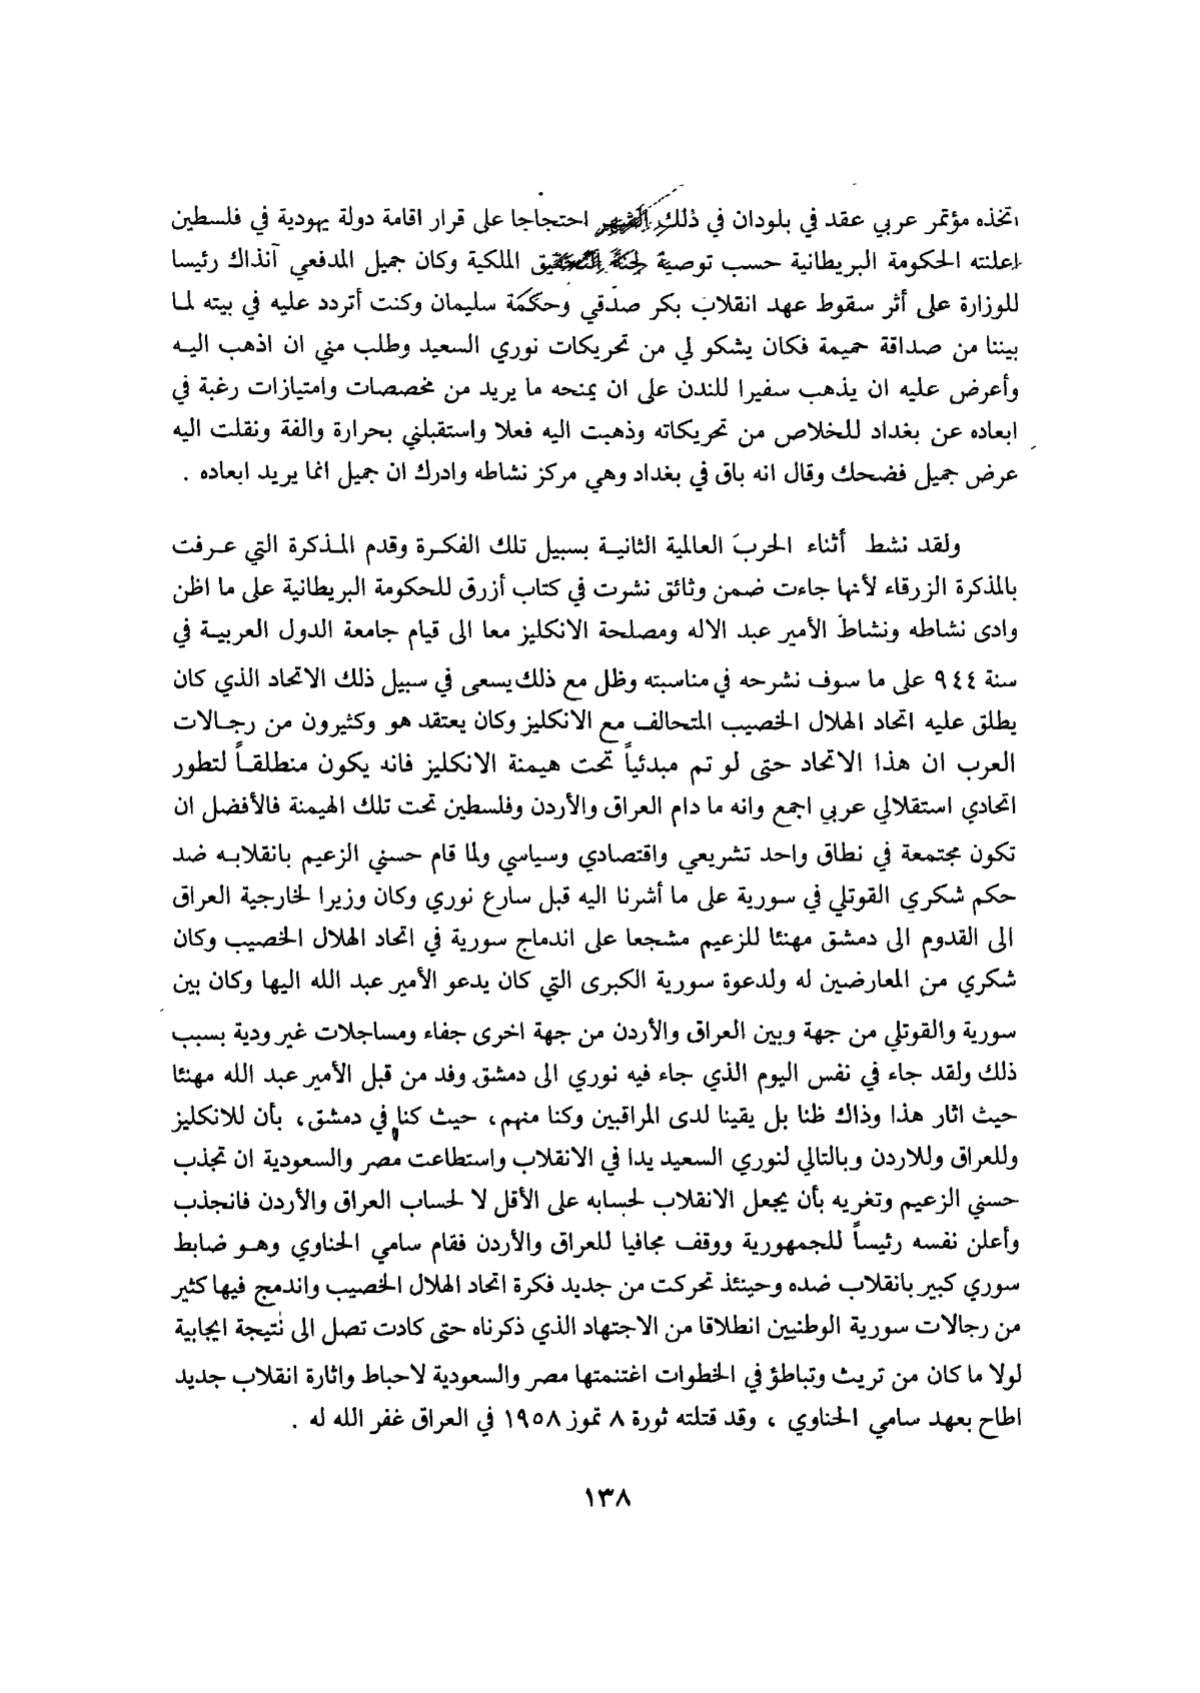 اتخذه مؤتمر عربي عقد في بلودان في ذلك الشهر احتجاجا على قرار اقامة دولة يهودية في فلسطين
اعلنته الحكومة البريطانية حسب توصية لجنة التحقيق الملكية وكان جميل المدفعي آنذاك رئيسا
للوزارة على أثر سقوط عهد انقلاب بكر صدقي وحكمة سليمان وكنت أتردد عليه في بيته لما
بيننا من صداقة حميمة فكان يشكو لي من تحريكات نوري السعيد وطلب مني ان اذهب اليه
وأعرض عليه ان يذهب سفيرا للندن على ان يمنحه ما يريد من مخصصات وامتيازات رغبة في
ابعاده عن بغداد للخلاص من تحريكاته وذهبت اليه فعلا واستقبلني بحرارة والفة ونقلت اليه
عرض جميل فضحك وقال انه باق في بغداد وهي مركز نشاطه وادرك ان جميل انما يريد ابعاده .
ولقد نشط أثناء الحرب العالمية الثانية بسبيل تلك الفكرة وقدم المذكرة التي عرفت
بالمذكرة الزرقاء لأنها جاءت ضمن وثائق نشرت في كتاب أزرق للحكومة البريطانية على ما اظن
وادى نشاطه ونشاط الأمير عبد الاله ومصلحة الانكليز معا الى قيام جامعة الدول العربية في
سنة ٩٤٤ على ما سوف نشرحه في مناسبته وظل مع ذلك يسعى في سبيل ذلك الاتحاد الذي كان
يطلق عليه اتحاد الهلال الخصيب المتحالف مع الانكليز وكان يعتقد هو وكثيرون من رجالات
العرب ان هذا الاتحاد حتى لو تم مبدئياً تحت هيمنة الانكليز فانه يكون منطلقاً لتطور
اتحادي استقلالي عربي اجمع وانه ما دام العراق والأردن وفلسطين تحت تلك الهيمنة فالأفضل ان
تكون مجتمعة في نطاق واحد تشريعي واقتصادي وسياسي ولما قام حسني الزعيم بانقلابه ضد
حكم شكري القوتلي في سورية على ما أشرنا اليه قبل سارع نوري وكان وزيرا لخارجية العراق
الى القدوم الى دمشق مهنئا للزعيم مشجعا على اندماج سورية في اتحاد الهلال الخصيب وكان
شكري من المعارضين له ولدعوة سورية الكبرى التي كان يدعو الأمير عبد الله اليها وكان بين
سورية والقوتلي من جهة وبين العراق والأردن من جهة اخرى جفاء ومساجلات غير ودية بسبب
ذلك ولقد جاء في نفس اليوم الذي جاء فيه نوري الى دمشق وفد من قبل الأمير عبد الله مهنئا
حيث اثار هذا وذاك ظنا بل يقينا لدى المراقبين وكنا منهم، حيث كنا في دمشق، بأن للانكليز
وللعراق وللاردن وبالتالي لنوري السعيد يدا في الانقلاب واستطاعت مصر والسعودية ان تجذب
حسني الزعيم وتغريه بأن يجعل الانقلاب لحسابه على الأقل لا لحساب العراق والأردن فانجذب
وأعلن نفسه رئيساً للجمهورية ووقف مجافيا للعراق والأردن فقام سامي الحناوي وهو ضابط
سوري كبير بانقلاب ضده وحينئذ تحركت من جديد فكرة اتحاد الهلال الخصيب واندمج فيها كثير
من رجالات سورية الوطنيين انطلاقا من الاجتهاد الذي ذكرناه حتى كادت تصل الى نتيجة ايجابية
لولا ما كان من تريث وتباطؤ في الخطوات اغتنمتها مصر والسعودية لاحباط واثارة انقلاب جديد
اطاح بعهد سامي الحناوي ، وقد قتلته ثورة ٨ تموز ١٩٥٨ في العراق غفر الله له .
١٣٨